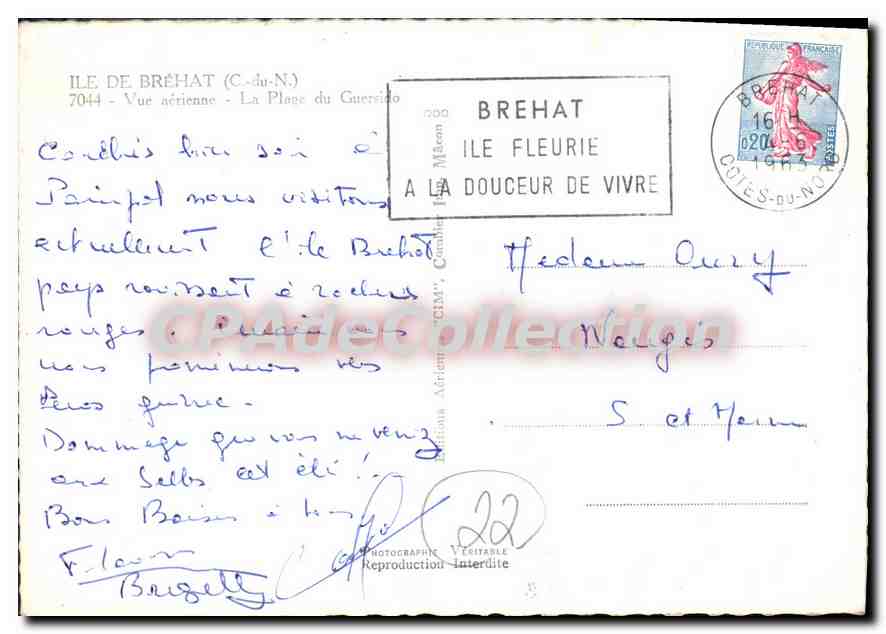 ILE DE BRÉHAT (C.-du-N.)
7044 - Vue aérienne - La Plage du Guersido
Couchés hier soir à
Paimpol nous visitons
actuellement l'île Brehat
pays ravissant à rochers
rouges.
nous
Perros guirec.
Dommage que vous ne veniez
aux Selles cet été !
Bons Baisers à tous
Brigitte
BREHAT
ILE FLEURIE
A LA DOUCEUR DE VIVRE
REPUBLIQUE FRANÇAISE
0,20
POSTES
BREHAT
16 H
1963
COTES-DU-NORD
Madame Oury
Nangis
S. et Marne
Editions Aériennes "CIM", Combier Imp. Mâcon
22
PHOTOGRAPHIE VÉRITABLE
Reproduction Interdite
CPAdeCollection